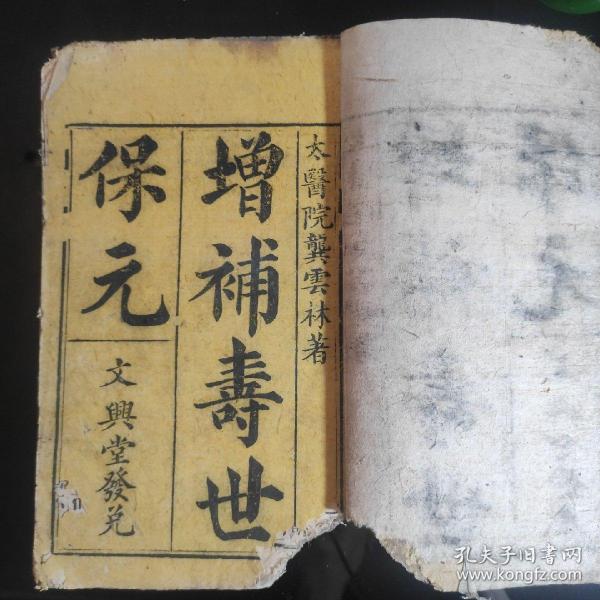 太醫院龔雲林著
增補壽世
保元
文興堂發兌
孔夫子旧书网
www.kongfz.com